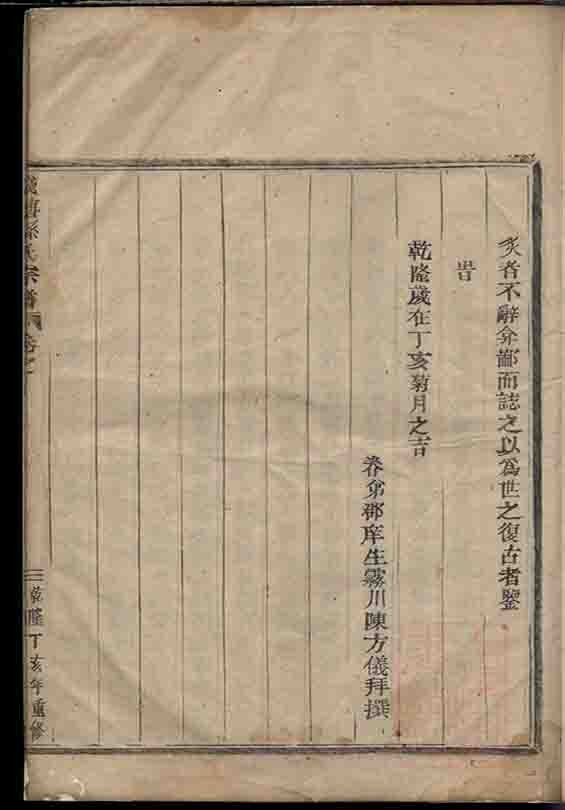 炙者不辭弇鄙而誌之以為世之復古者鑒
旹
乾隆歲在丁亥菊月之吉
眷弟郡庠生霧川陳方儀拜撰
孫氏宗譜 卷之
乾隆丁亥年重修